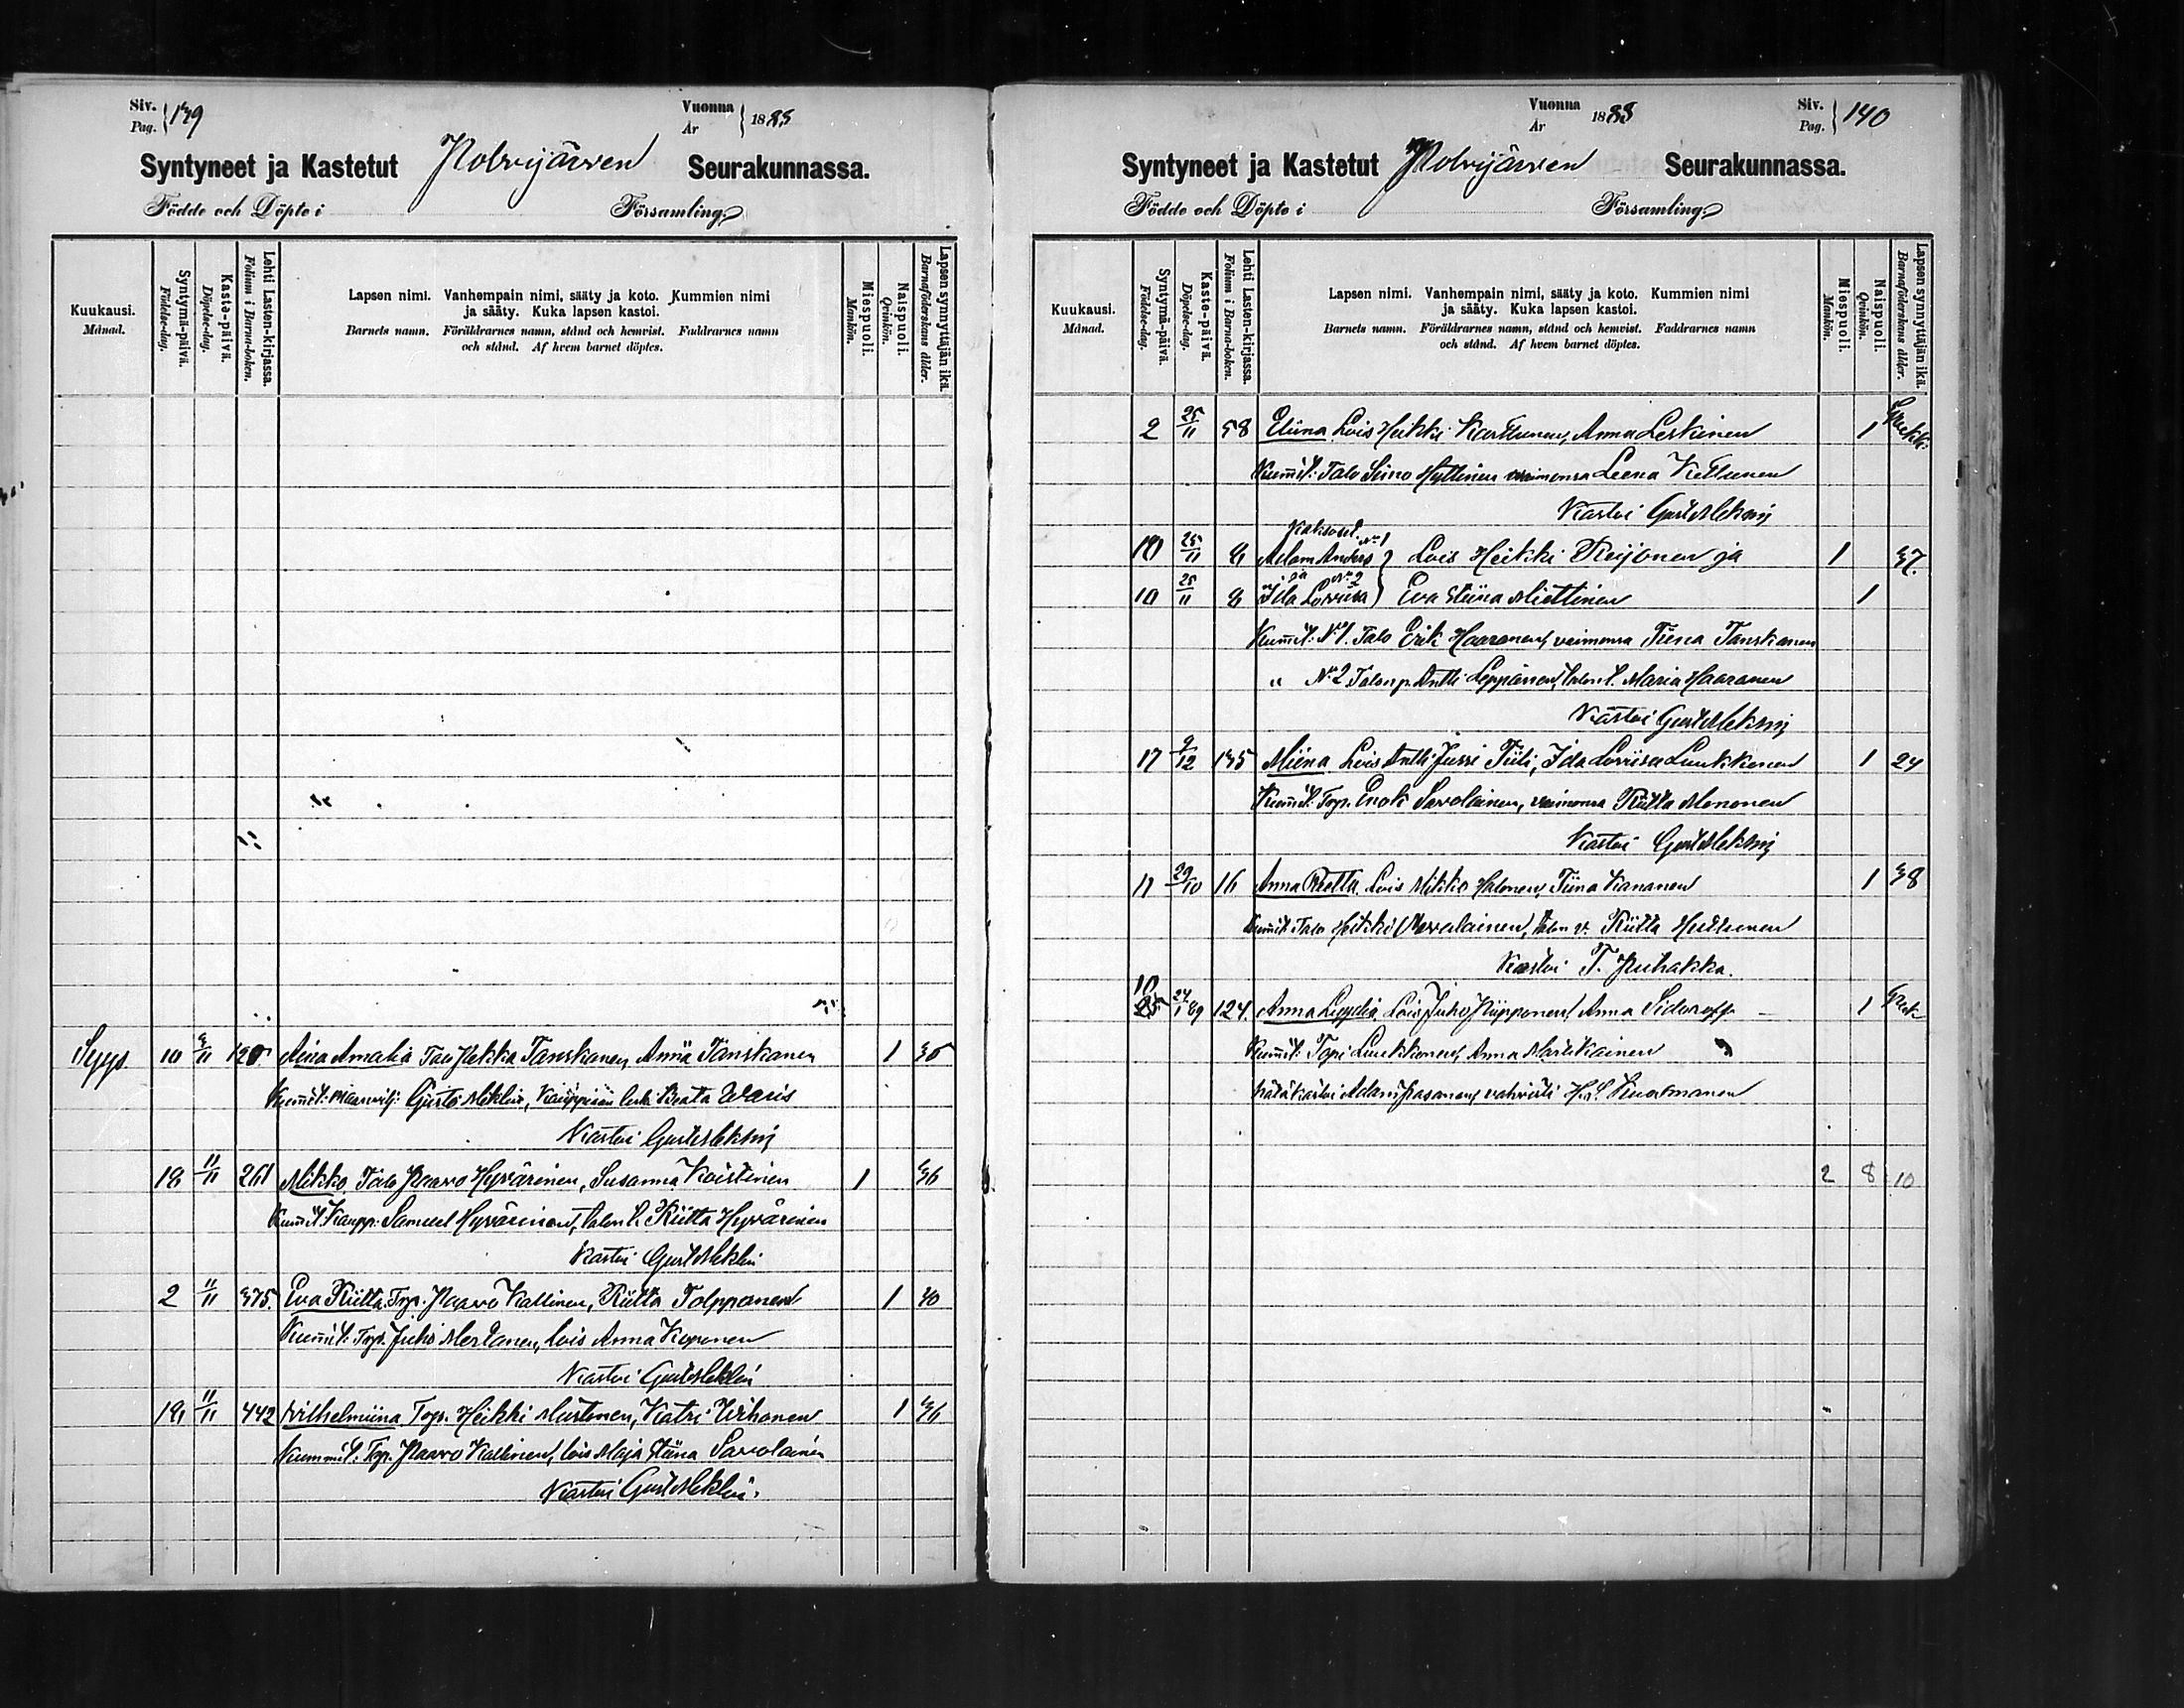 Siv. Pag. 139
Vuonna År 1888
Syntyneet ja Kastetut Polvijärven Seurakunnassa.
Födde och Döpte i Församling.
Kuukausi. Månad.
Syntymä-päivä. Födelse-dag.
Kaste-päivä. Döpelse-dag.
Lehti Lasten-kirjassa. Folium i Barna-boken.
Lapsen nimi. Vanhempain nimi, sääty ja koto. Kummien nimi
ja sääty. Kuka lapsen kastoi.
Barnets namn. Föräldrarnes namn, stånd och hemvist. Faddrarnes namn
och stånd. Af hvem barnet döptes.
Miespuoli. Mankön.
Naispuoli. Qvinkön.
Lapsen synnyttäjän ikä. Barnaföderskans ålder.
Syys. 10 120 Aina Amalia Tal. Pekka Tanskanen, Anna Tanskanen 1
Kummit: Gusto Meklin, Beata Waris
Kastoi Gust Meklin
11/11 261 Mikko Talo Paavo Hyvärinen, Susanna Koistinen 1 36
Kummit: Kaupp. Samuel Hyvärinen, talon t. Riitta Hyvärinen
Kastoi Gust Meklin
2 11/11 375. Eva Riitta Trp. Paavo Kallinen, Riitta Tolppanen 1 40
Kummit: Trp. Juho Mertanen, lois Anna Koponen
Kastoi Gust Meklin
11/11 442 Wilhelmiina Trp. Heikki Mustonen, Katri Wihonen 1 36
Kummit: Trp. Paavo Kallinen, lois Maja Stiina Savolainen
Kastoi Gust Meklin.
Vuonna År 1888
Siv. Pag. 140
Syntyneet ja Kastetut Polvijärven Seurakunnassa.
Födde och Döpte i Församling.
Kuukausi. Månad.
Syntymä-päivä. Födelse-dag.
Kaste-päivä. Döpelse-dag.
Lehti Lasten-kirjassa. Folium i Barna-boken.
Lapsen nimi. Vanhempain nimi, sääty ja koto. Kummien nimi
ja sääty. Kuka lapsen kastoi.
Barnets namn. Föräldrarnes namn, stånd och hemvist. Faddrarnes namn
och stånd. Af hvem barnet döptes.
Miespuoli. Mankön.
Naispuoli. Qvinkön.
Lapsen synnyttäjän ikä. Barnaföderskans ålder.
2 25/11 58 Eliina Lois Heikki Karttunen, Anna Leskinen 1
Kummit: Talo Simo Hyttinen vaimonsa Leena Kettunen
Kastoi Gust Meklin
Kaksoset. No 1
10 25/11 8 Adam Anders Lois Heikki Reijonen ja 1 37.
ja No 2
10 25/11 8 Ida Loviisa Eva Stiina Miettinen 1
Kummit: No 1. Talo Erik Haaranen, vaimonsa Tiina Tanskanen
" No 2 Talonp. Antti Leppänen, talon t. Maria Haaranen
Kastoi Gust Meklin
17 9/12 135 Miina Lois Antti Jussi Tiili, Ida Loviisa Luukkonen 1 24
Kummit: Trp. Enok Savolainen, vaimonsa Riitta Mononen
Kastoi Gust Meklin
11 29/10 16 Anna Reetta. Lois Mikko Halonen, Tiina Kananen 1 38
Kummit: Talo Heikki Nevalainen, talon v. Riitta Huttunen
Kastoi T. Puhakka.
10
25 24/1 89 124. Anna Lyydia, Lois Juho Piipponen, Anna Sidoroff 1
Kummit: Topi Luukkonen, Anna Martikainen
hätäkastoi Adam Pasanen, vahvisti
2 8 10